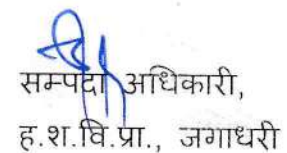 सम्पदा अधिकारी,
ह.श.वि.प्रा., जगाधरी